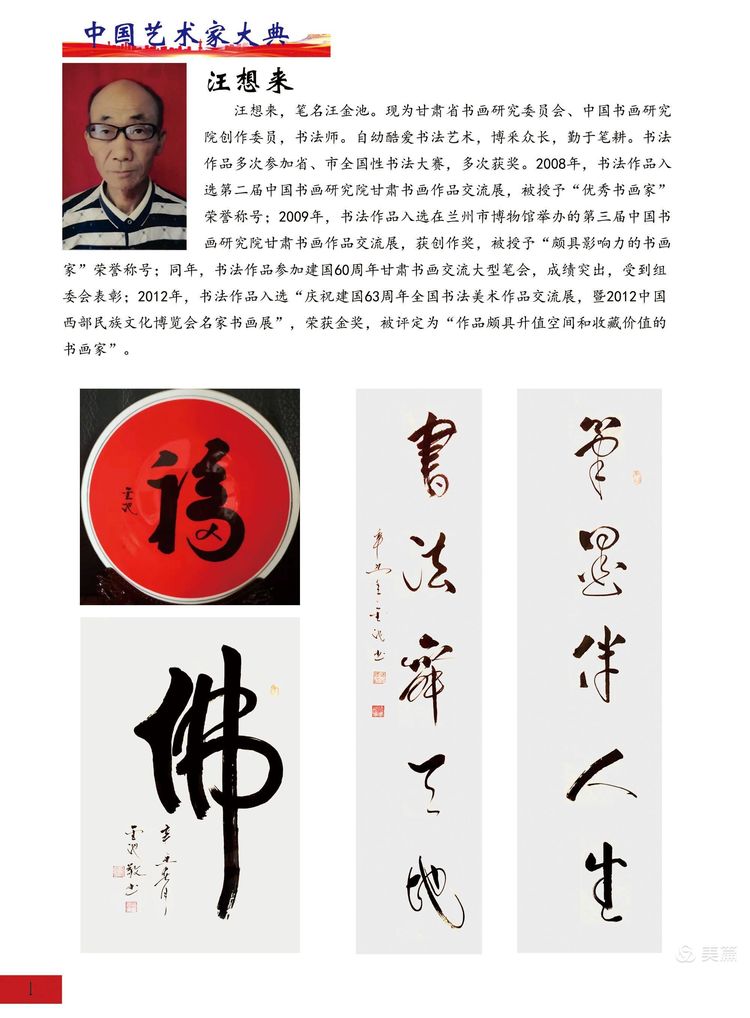 中国艺术家大典
汪想来
汪想来，笔名汪金池。现为甘肃省书画研究委员会、中国书画研究
院创作委员，书法师。自幼酷爱书法艺术，博采众长，勤于笔耕。书法
作品多次参加省、市全国性书法大赛，多次获奖。2008年，书法作品入
选第二届中国书画研究院甘肃书画作品交流展，被授予“优秀书画家”
荣誉称号；2009年，书法作品入选在兰州市博物馆举办的第三届中国书
画研究院甘肃书画作品交流展，获创作奖，被授予“颇具影响力的书画
家”荣誉称号；同年，书法作品参加建国60周年甘肃书画交流大型笔会，成绩突出，受到组
委会表彰；2012年，书法作品入选“庆祝建国63周年全国书法美术作品交流展，暨2012中国
西部民族文化博览会名家书画展”，荣获金奖，被评定为“作品颇具升值空间和收藏价值的
书画家”。
福
金池
筆墨伴人生
書法舞天地
佛
金池敬书
美篇
1